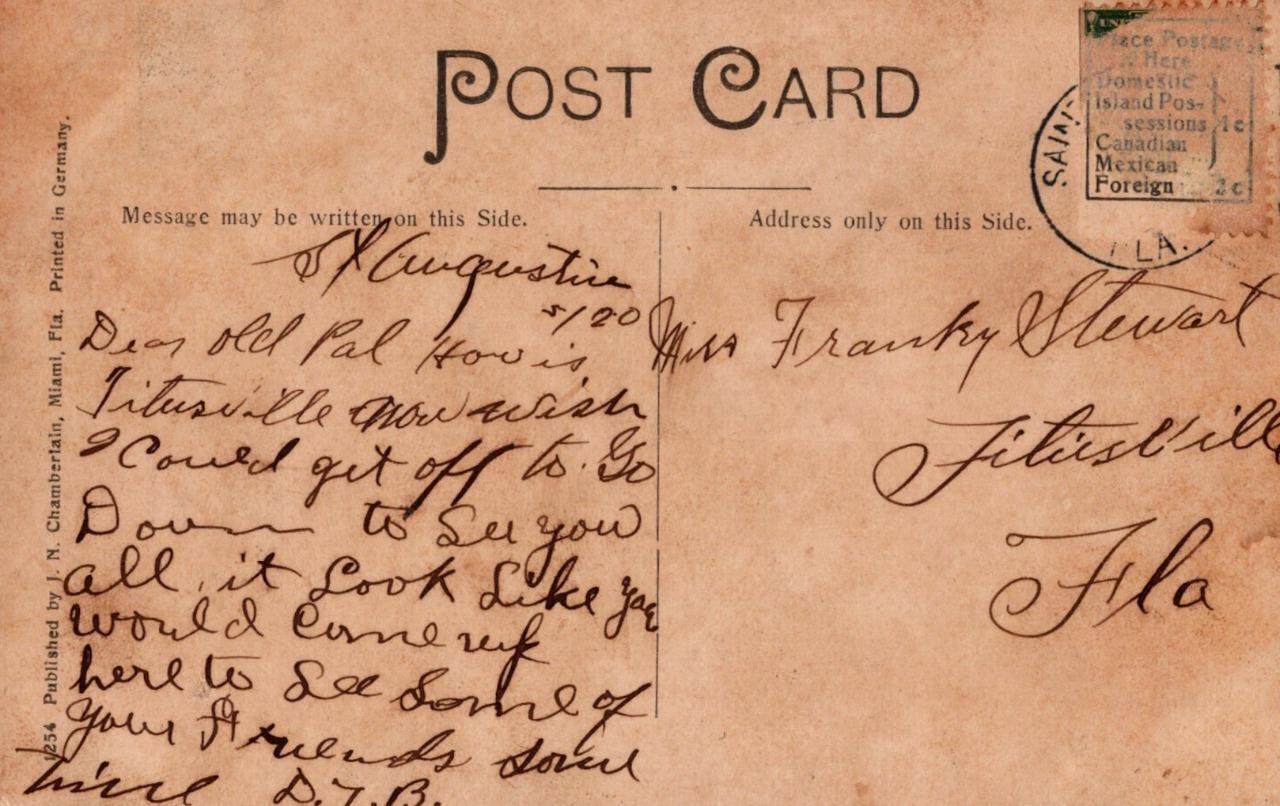 POST CARD
Message may be written on this Side.
Address only on this Side.
Place Postage
Here
Domestic
Island Pos-
sessions 1c
Canadian
Mexican
Foreign 2c
FLA.
1254 Published by J. N. Chamberlain, Miami, Fla. Printed in Germany.
St Augustine
5/20
Dear old Pal How is
Titusville now wish
I Could get off to Go
Down to See you
all, it Look Like you
would Come up
here to See Some of
your Friends Some
time D.T.B.
Miss Franky Stewart
Titusville
Fla